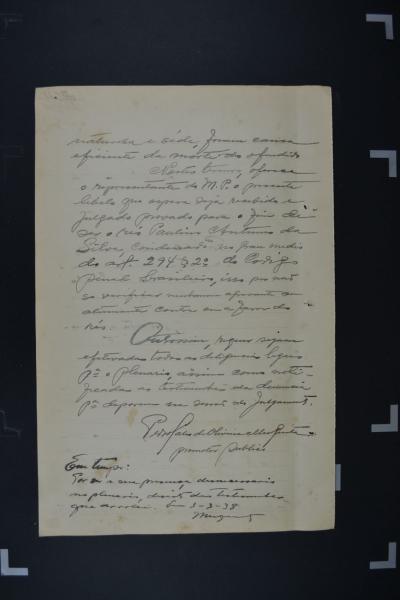 natureza e séde, foram causa
efficiente da morte do ofendido
Nestes termos, oferece
o representante do M.P. o presente
libelo que espera seja recebido e
julgado provado para o fim de
ser o réu Paulino Antunes da
Silva, condenado no grau medio
do art. 294 § 2º do Codigo
Penal Brasileiro, isso por não
se verificar nenhuma agravante ou
atenuante contra ou a favor do
réu.
Outrossim, requer sejam
efetivadas todas as diligencias legais
pª o plenario, assim como noti-
ficadas as testemunhas da denuncia
pª deporem na sessão de Julgamento.
Pedro de Oliveira
promotor publico
Em tempo:
a sua presença desnecessaria
no plenario, das testemunhas
que 3-3-38